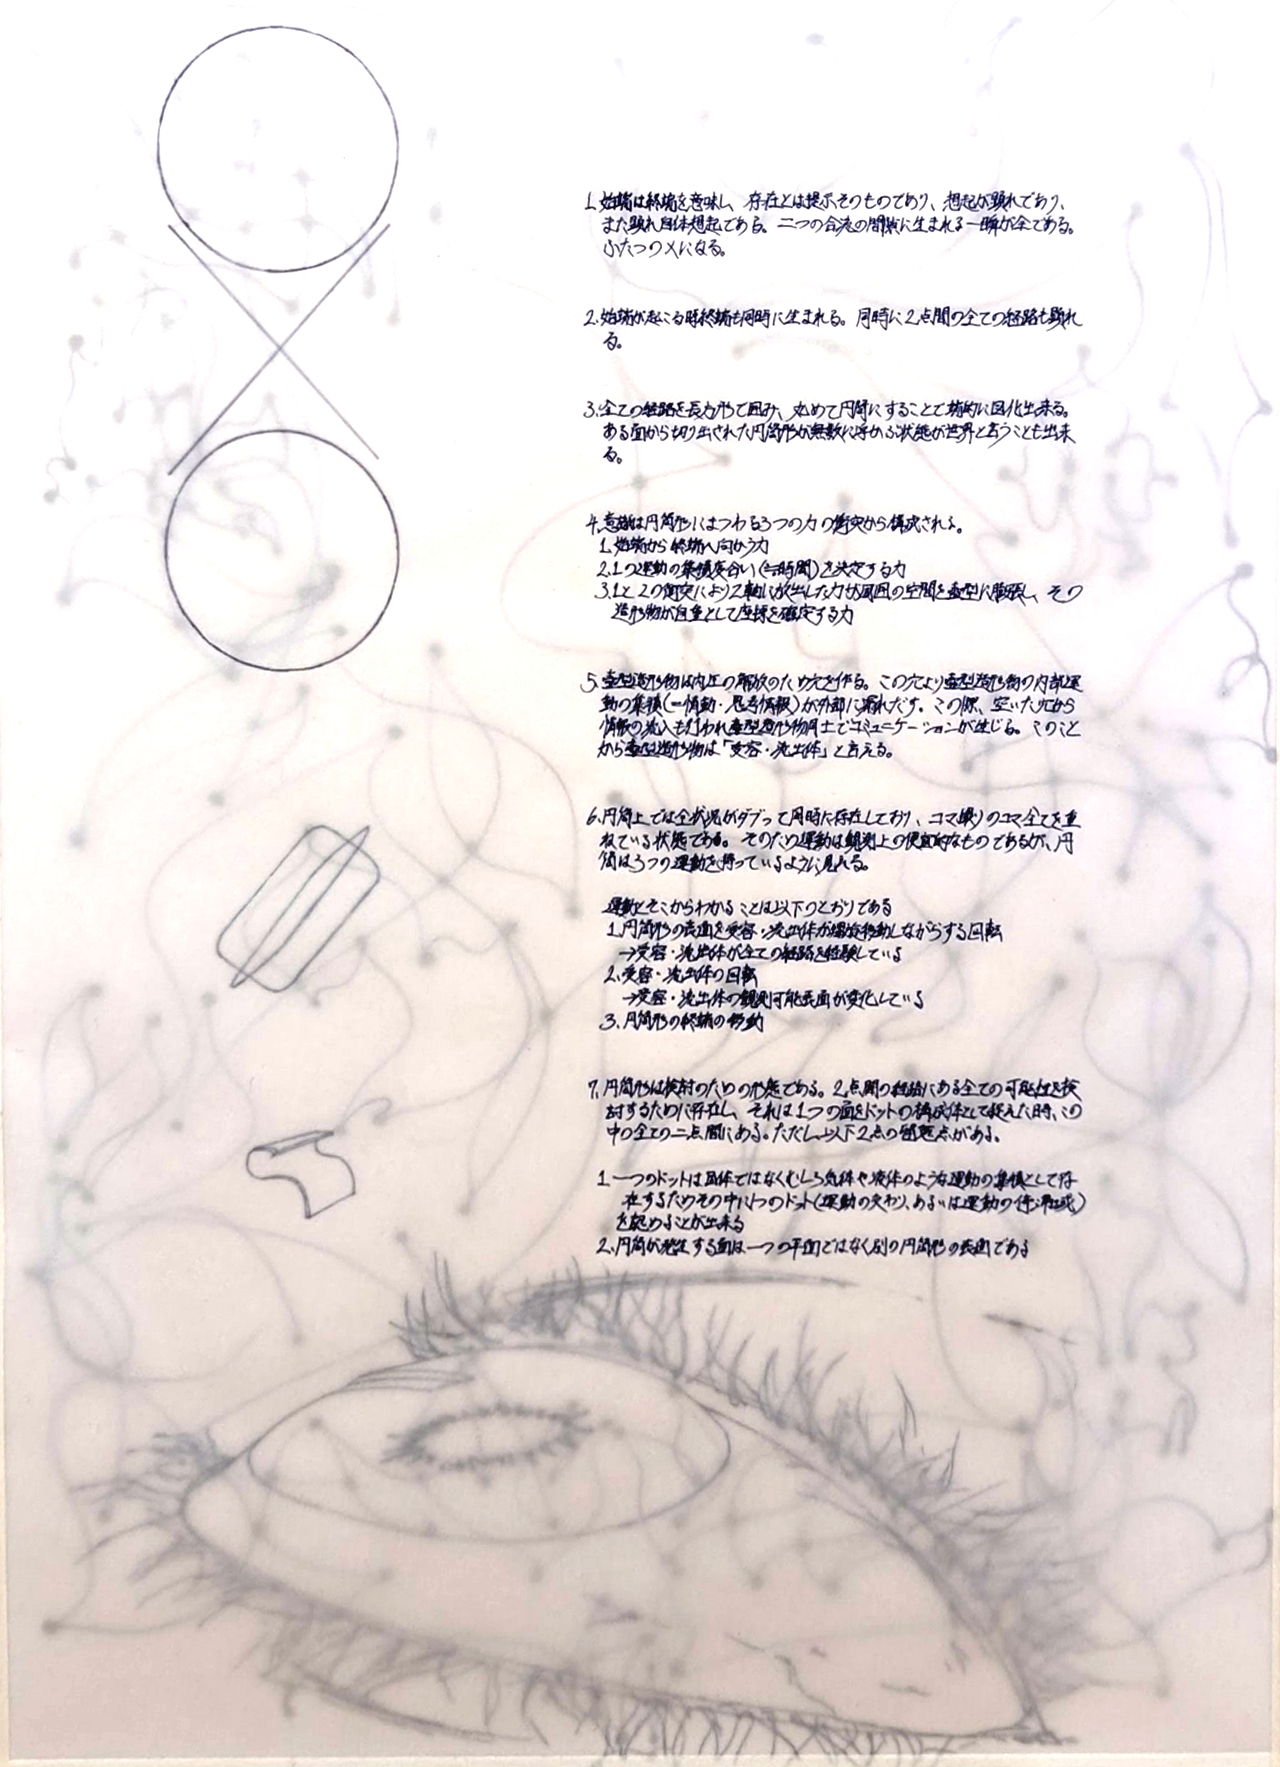 1. 始端は終端を意味し、存在とは提示そのものであり、想起が顕れであり、
また顕れ自体想起である。二つの合流の間隙に生まれる一瞬が全である。
ふたつのメになる。
2. 始端が起こる時終端も同時に生まれる。同時に2点間の全ての経路も顕れ
る。
3. 全ての経路を長方形で囲み、丸めて円筒にすることで端的に図化出来る。
ある面から切り出された円筒形が無数に浮かぶ状態が世界と言うことも出来
る。
4. 意識は円筒形にまつわる3つの力の衝突から構成される。
1. 始端から終端へ向かう力
2. 1の運動の集積度合い(≒時間)を決定する力
3. 1と2の衝突により2軸に放出した力が周囲の空間を壺型に膨張し、その
造形物が自重として座標を確定する力
5. 壺型造形物は内圧の解放のため穴を作る。この穴より壺型造形物の内部運
動の集積(=情動・思考情報)が外部に漏れだす。この際、空いた穴から
情報の流入も行われ壺型造形物同士でコミュニケーションが生じる。このこと
から壺型造形物は「受容・流出体」と言える。
6. 円筒上では全状況がダブって同時に存在しており、コマ撮りのコマ全てを重
ねている状態である。そのため運動は観測上の便宜的なものであるが、円
筒は3つの運動を持っているように見れる。
運動とそこからわかることは以下のとおりである
1. 円筒形の表面を受容・流出体が螺旋移動しながらする回転
→受容・流出体が全ての経路を経験している
2. 受容・流出体の回転
→受容・流出体の観測可能表面が変化している
3. 円筒形の終端の移動
7. 円筒形は検討のための形態である。2点間の経路にある全ての可能性を検
討するために存在し、それは1つの面をドットの構成体として捉えた時、この
中の全ての二点間にある。ただし以下2点の留意点がある。
1. 一つのドットは固体ではなくむしろ気体や液体のような運動の集積として存
在するためその中に1つのドット(運動の交わり、あるいは運動の停滞域)
を認めることが出来る
2. 円筒が発生する面は一つの平面ではなく別の円筒形の表面である